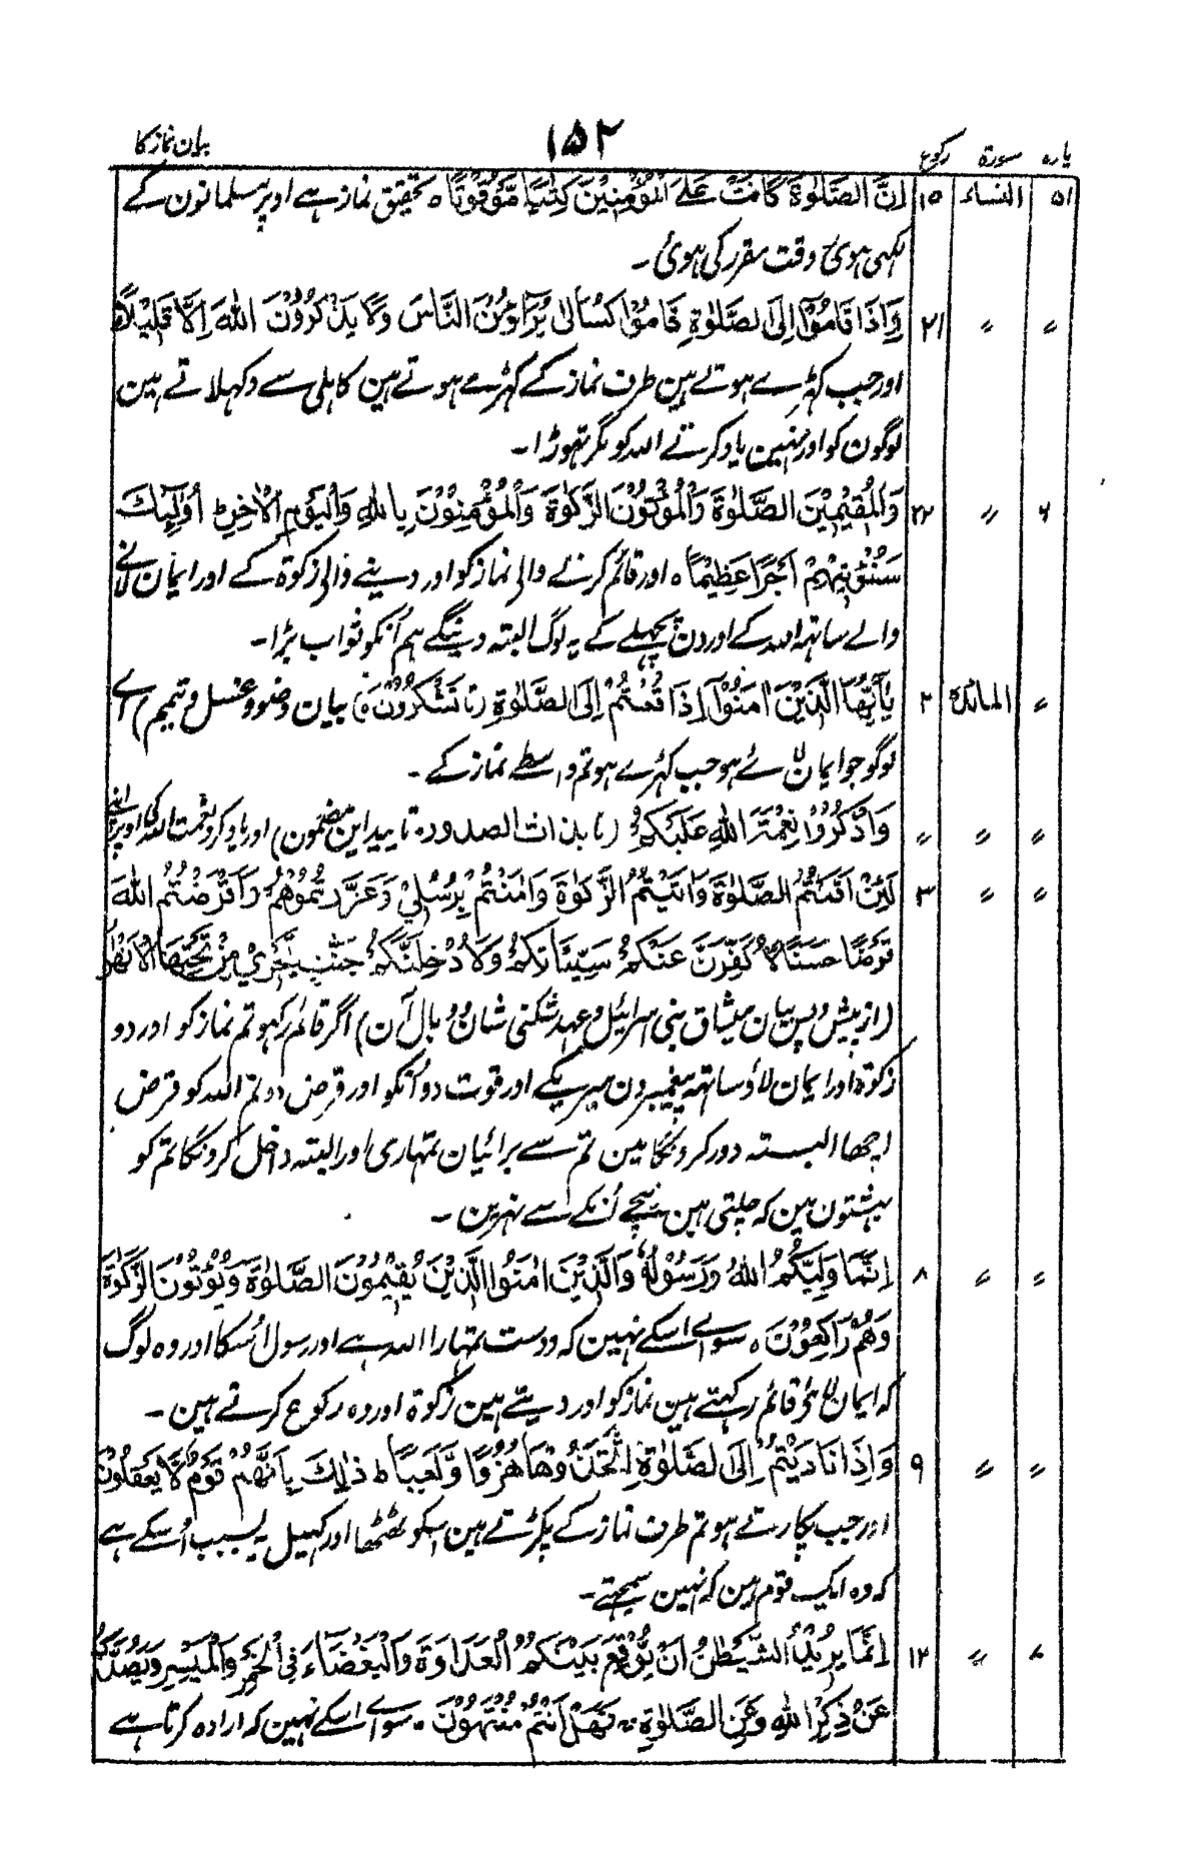 بیان نماز کا ۱۵۲ پارہ سورۃ رکوع
۵۱ النساء ۱۵ اِنَّ الصَّلٰوةَ كَانَتْ عَلَى الْمُؤْمِنِيْنَ كِتٰبًا مَّوْقُوْتًا ہ تحقیق نماز ہے اوپر مسلمانون کے
لکھی ہوئی وقت مقرر کی ہوئی ۔
〃 〃 ۲۱ وَاِذَا قَامُوْٓا اِلَى الصَّلٰوةِ قَامُوْا كُسَالٰى يُرَآءُوْنَ النَّاسَ وَلَا يَذْكُرُوْنَ اللّٰهَ اِلَّا قَلِيْلًا ہ
اور جب کہڑے ہوتے ہین طرف نماز کے کہڑے ہوتے ہین کاہلی سے دکہلاتے ہین
لوگون کو اور نہین یاد کرتے اللہ کو مگر تہوڑا ۔
۶ 〃 ۲۲ وَالْمُقِيْمِيْنَ الصَّلٰوةَ وَالْمُؤْتُوْنَ الزَّكٰوةَ وَالْمُؤْمِنُوْنَ بِاللّٰهِ وَالْيَوْمِ الْاٰخِرِ ط اُولٰٓئِكَ
سَنُؤْتِيْهِمْ اَجْرًا عَظِيْمًا ہ اور قائم کرنے والے نماز کو اور دینے والے زکوٰۃ کے اور ایمان لانے
والے ساتہہ اللہ کے اور دن پچہلے کے یہ لوگ البتہ دینگے ہم اُنکو ثواب بڑا ۔
〃 المائدۃ ۲ يٰٓاَيُّهَا الَّذِيْنَ اٰمَنُوْٓا اِذَا قُمْتُمْ اِلَى الصَّلٰوةِ (تا تَشْكُرُوْنَ ہ بیان وضو و غسل و تیمم) اے
لوگو جو ایمان لائے ہو جب کہڑے ہو تم واسطے نماز کے ۔
〃 〃 〃 وَاذْكُرُوْا نِعْمَتَ اللّٰهِ عَلَيْكُمْ (تا بذات الصدور ۔ تایید این مضمون) اور یاد کرو نعمت اللہ کی اوپر اپنے
〃 〃 ۳ لَئِنْ اَقَمْتُمُ الصَّلٰوةَ وَاٰتَيْتُمُ الزَّكٰوةَ وَاٰمَنْتُمْ بِرُسُلِيْ وَعَزَّرْتُمُوْهُمْ وَاَقْرَضْتُمُ اللّٰهَ
قَرْضًا حَسَنًا لَّاُكَفِّرَنَّ عَنْكُمْ سَيِّئَاتِكُمْ وَلَاُدْخِلَنَّكُمْ جَنّٰتٍ تَجْرِيْ مِنْ تَحْتِهَا الْاَنْهٰرُ
(از پیش و پس بیان میثاق بنی اسرائیل و عہد شکنی شان و وبال آن) اگر قائم رکہو تم نماز کو اور دو
زکوٰۃ اور ایمان لاؤ ساتہہ پیغمبرون میرے کے اور قوت دو اُنکو اور قرض دو تم اللہ کو قرض
اچھا البتہ دور کرونگا مین تم سے برائیان تمہاری اور البتہ داخل کرونگا تم کو
بہشتون مین کہ چلتی ہین نیچے اُنکے سے نہرین ۔
〃 〃 ۸ اِنَّمَا وَلِيُّكُمُ اللّٰهُ وَرَسُوْلُهٗ وَالَّذِيْنَ اٰمَنُوا الَّذِيْنَ يُقِيْمُوْنَ الصَّلٰوةَ وَيُؤْتُوْنَ الزَّكٰوةَ
وَهُمْ رَاكِعُوْنَ ہ سواے اسکے نہین کہ دوست تمہارا اللہ ہے اور رسول اُسکا اور وہ لوگ
کہ ایمان لائے قائم رکہتے ہین نماز کو اور دیتے ہین زکوٰۃ اور وہ رکوع کرتے ہین ۔
〃 〃 ۹ وَاِذَا نَادَيْتُمْ اِلَى الصَّلٰوةِ اتَّخَذُوْهَا هُزُوًا وَّلَعِبًا ط ذٰلِكَ بِاَنَّهُمْ قَوْمٌ لَّا يَعْقِلُوْنَ
اور جب پکارتے ہو تم طرف نماز کے پکڑتے ہین اسکو ٹھٹھا اور کہیل یہ بسبب اُسکے ہے
کہ وہ ایک قوم ہین کہ نہین سمجہتے ۔
〃 ۱۲ اِنَّمَا يُرِيْدُ الشَّيْطٰنُ اَنْ يُّوْقِعَ بَيْنَكُمُ الْعَدَاوَةَ وَالْبَغْضَآءَ فِي الْخَمْرِ وَالْمَيْسِرِ وَيَصُدَّكُمْ
عَنْ ذِكْرِ اللّٰهِ وَعَنِ الصَّلٰوةِ ۔ فَهَلْ اَنْتُمْ مُّنْتَهُوْنَ ۔ سواے اسکے نہین کہ ارادہ کرتا ہے